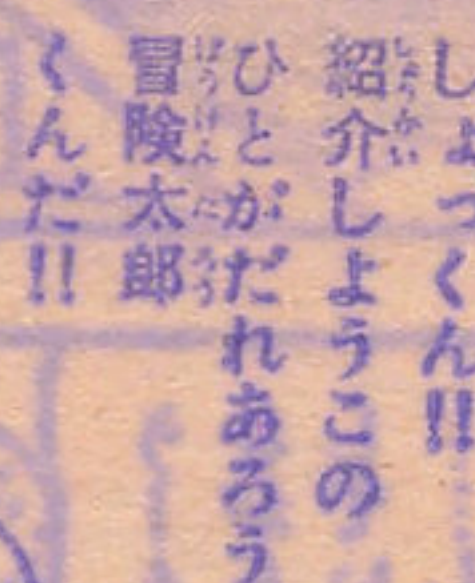 しょっくん!!
紹介しようこの
ひとがだれあろう
冒険太郎
くんだ!!